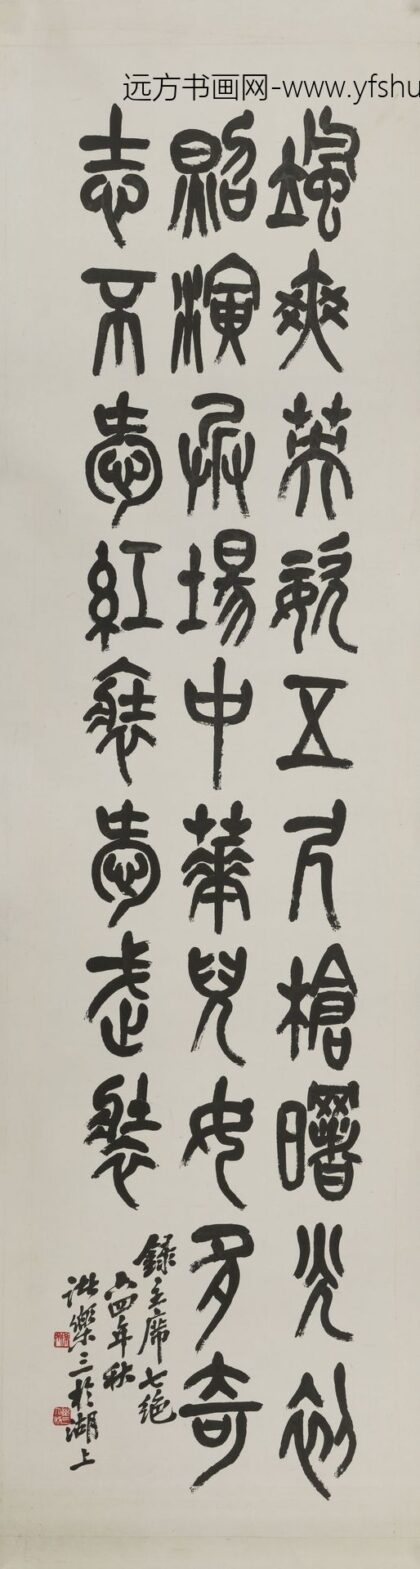 远方书画网-www.yfshu
颯爽英姿五尺槍曙光初
照演兵場中華兒女多奇
志不愛紅裝愛武裝
録主席七绝
六四年秋
諸樂三於湖上